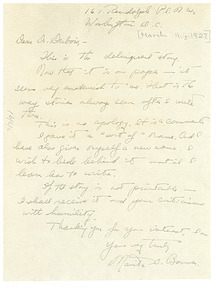 Randolph Pl. N.W.
Washington D.C.
[March 11, 1927]
This is the delinquent story.
Now that it is on paper - it
seems very
way stories always seem after I write
This is no apology. It is a comment
I gave it a "sort of" name. And I
have also given myself a new name I
wish to hide behind it until I
learn how to write.
If the story is not printable -
I shall receive it and your criticisms
with humility.
Thanking you for your interest I am
Very truly